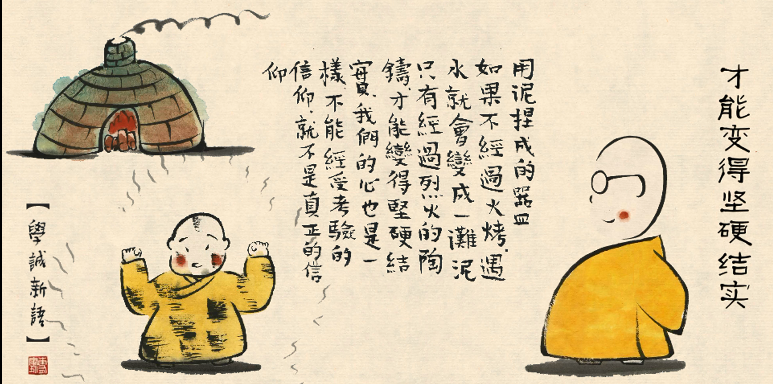 才能变得坚硬结实
用泥捏成的器皿
如果不經過火烤,遇
水就會變成一灘泥
只有經過烈火的陶
鑄,才能變得堅硬結
實,我們的心也是一
樣,不能經受考驗的
信仰,就不是真正的信
仰
【學誠新語】